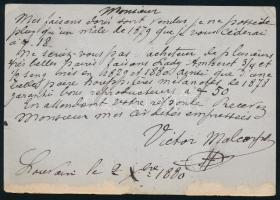 Monsieur
Mes faisans dorés sont vendus, je ne possède
plus qu'un mâle de 1879 que je vous céderai
à f 18.
Ne seriez-vous pas acheteur de plusieurs
très belles paires faisans Lady Amherst 3/4 et
7/8 sang nés en 1879 et 1880 ainsi que d'une
belle paire houppifères mélanotes de 1878
garantis bons reproducteurs à f 50
En attendant votre réponse recevez
Monsieur mes civilités empressées
Victor Malcorps
Louvain le 2 Xbre 1880